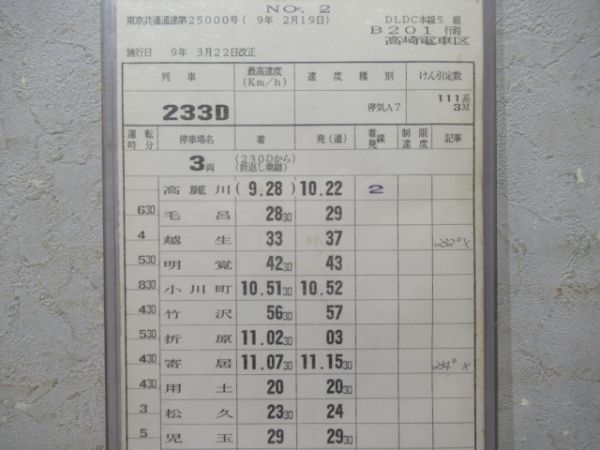 NO. 2
東京共通通達第25000号( 9年 2月19日)
DLDC本線5 組
B201行路
高崎電車区
施行日 9年 3月22日改正
列車 最高速度(Km/h) 速度種別 けん引定数
233D 停気A7 111系 3M
運転時分 停車場名 着 発(通) 着線発 制限速度 記事
3両 (230Dから)折返し乗継
高麗川 (9.28) 10.22 2
630 毛呂 28 30 29
4 越生 33 37 232D X
530 明覚 42 30 43
830 小川町 10.51 30 10.52
430 竹沢 56 30 57
530 折原 11.02 30 03
430 寄居 11.07 30 11.15 30 234D X
430 用土 20 20 30
3 松久 23 30 24
5 児玉 29 29 30